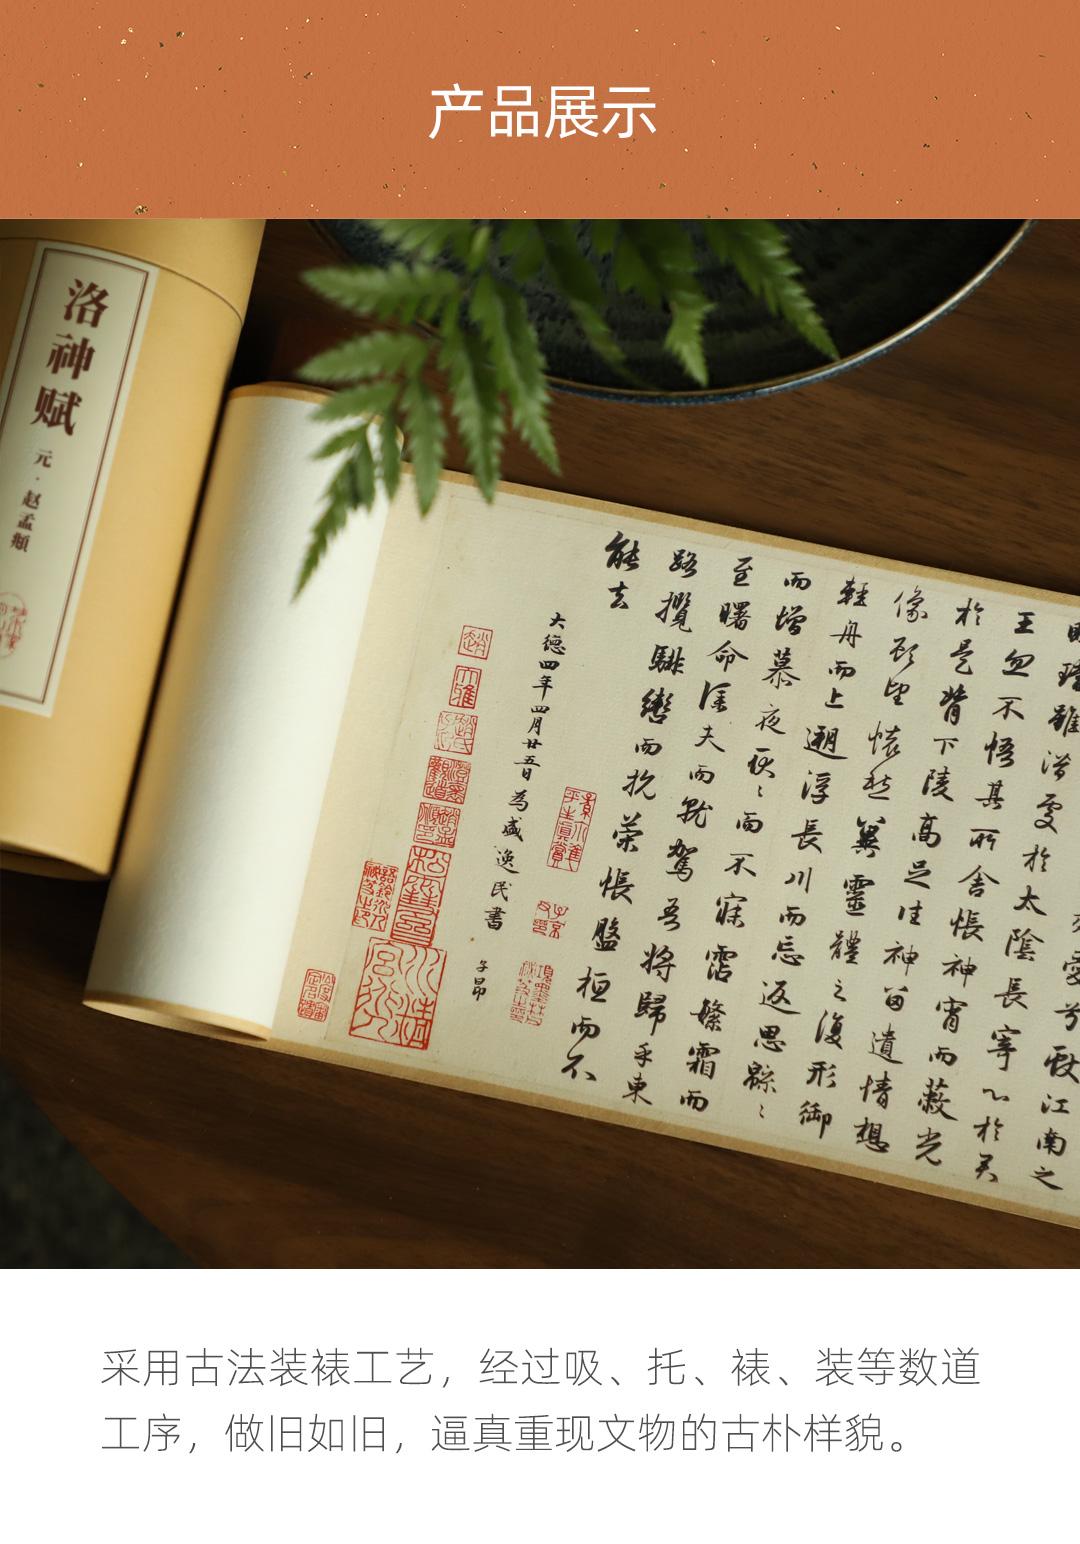 产品展示
洛神赋
元·赵孟頫
愛兮獻江南之
明璫雖潛處於太陰長寄心於君
王忽不悟其所舍悵神宵而蔽光
於是背下陵高足往神留遺情想
像顧望懷愁冀靈體之復形御
輕舟而上遡浮長川而忘返思緜〻
而增慕夜耿〻而不寐霑繁霜而
至曙命僕夫而就駕吾將歸乎東
路攬騑轡而抗策悵盤桓而不
能去
大德四年四月廿五日為盛逸民書
子昂
趙
大雅
松雪齋
采用古法装裱工艺，经过吸、托、裱、装等数道
工序，做旧如旧，逼真重现文物的古朴样貌。